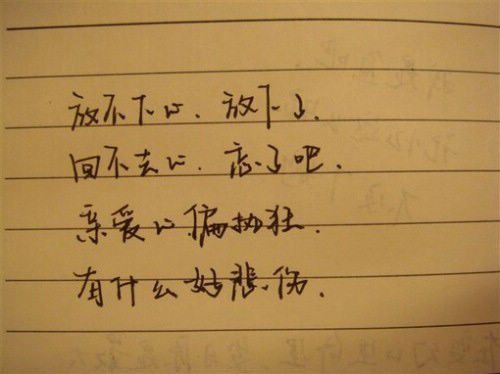 放不下的. 放下了.
回不去的. 忘了吧.
亲爱的偏执狂.
有什么好悲伤.